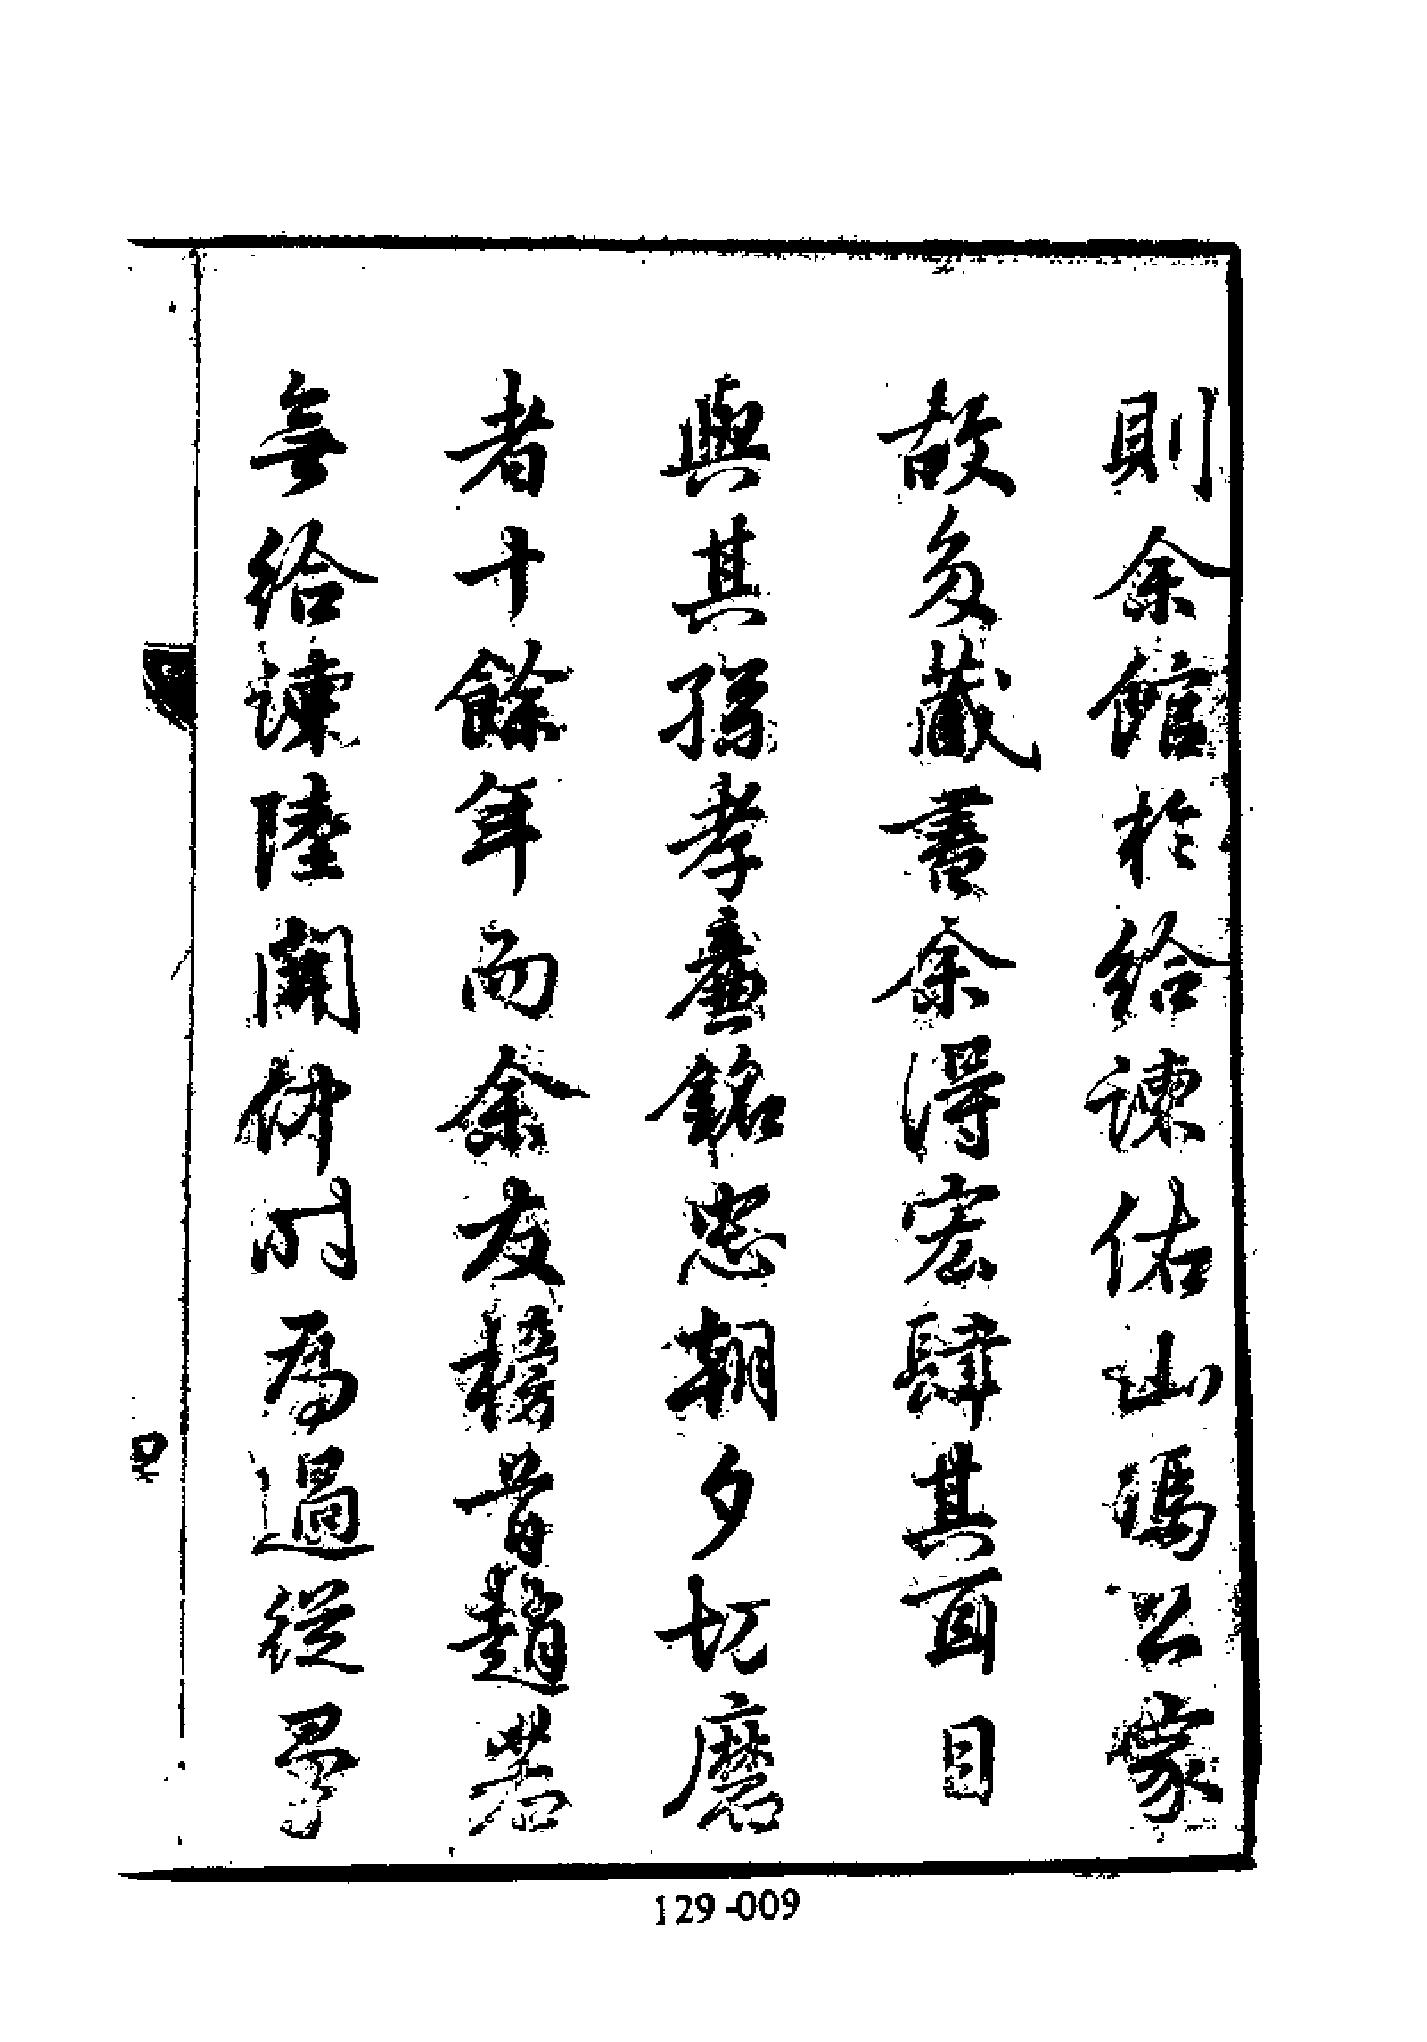 則余館於給諫佑山馮公家
故多藏書余得宏肆其面目
與其孫孝廉銘忠朝夕切磨
者十餘年而余友穆昔趙若
無給諫陸開仲時為過從予
四
129-009